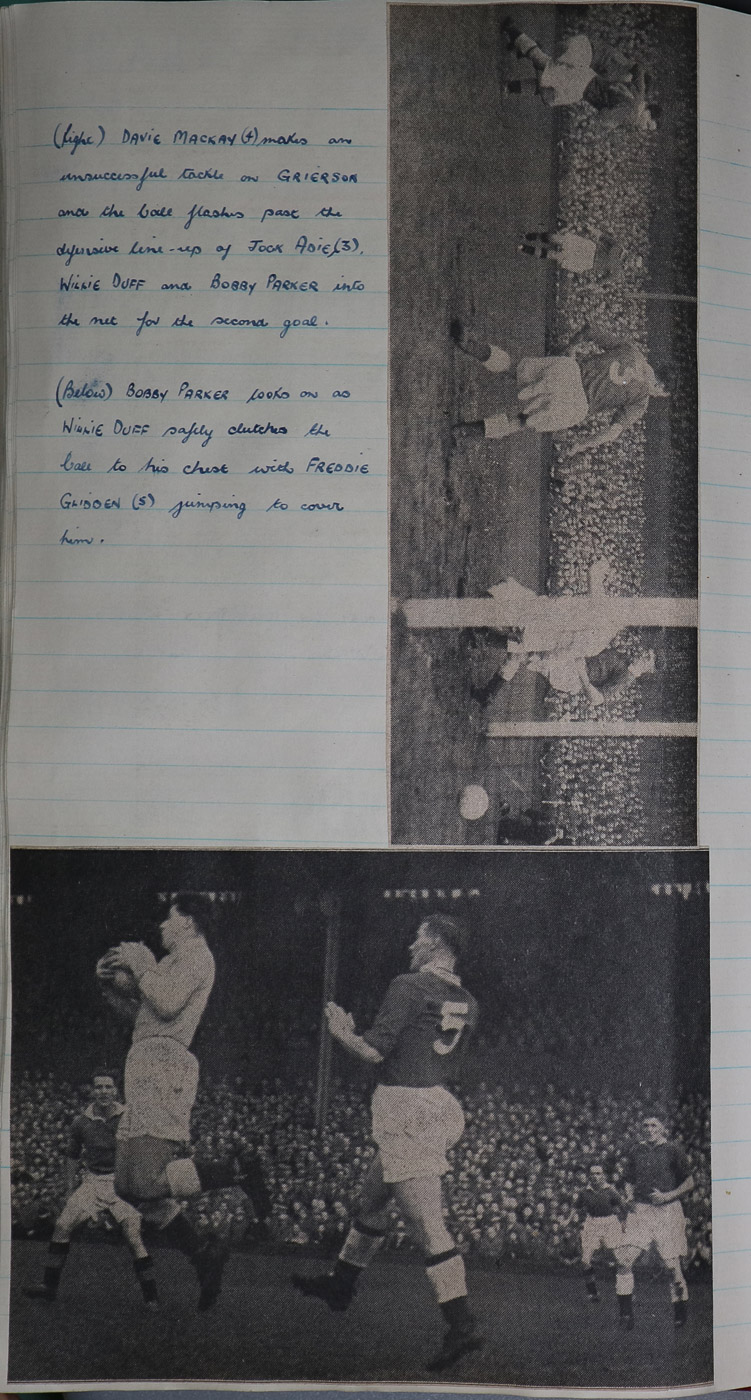 (Right) DAVIE MACKAY (4) makes an
unsuccessful tackle on GRIERSON
and the ball flashes past the
defensive line-up of JOCK ADIE (3),
WILLIE DUFF and BOBBY PARKER into
the net for the second goal.
(Below) BOBBY PARKER looks on as
WILLIE DUFF safely clutches the
ball to his chest with FREDDIE
GLIDDEN (5) jumping to cover
him.
5